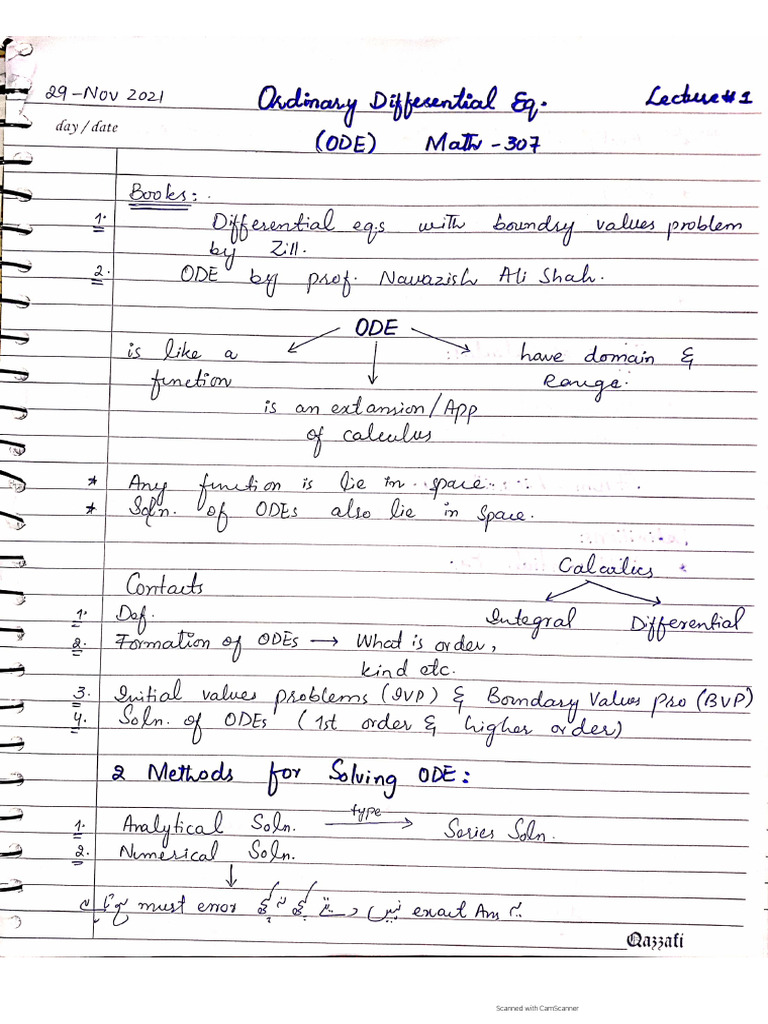 29-Nov 2021 Ordinary Differential Eq. Lecture#1
day / date
(ODE) Math - 307
Books:
1. Differential eqs with boundry values problem
by Zill.
2. ODE by prof. Nawazish Ali Shah.
ODE
is like a have domain &
function Range.
is an extansion/App
of calculus
* Any function is lie in space
* Soln. of ODEs also lie in space.
Calculus
Contacts
1. Def. Integral Differential
2. Formation of ODEs → What is order,
kind etc.
3. Initial values problems (IVP) & Boundary Values Pro (BVP)
4. Soln. of ODEs (1st order & higher order)
2 Methods for Solving ODE:
1. Analytical Soln. type → Series Soln.
2. Numerical Soln.
must error نہیں exact Ans
Qazzafi
Scanned with CamScanner